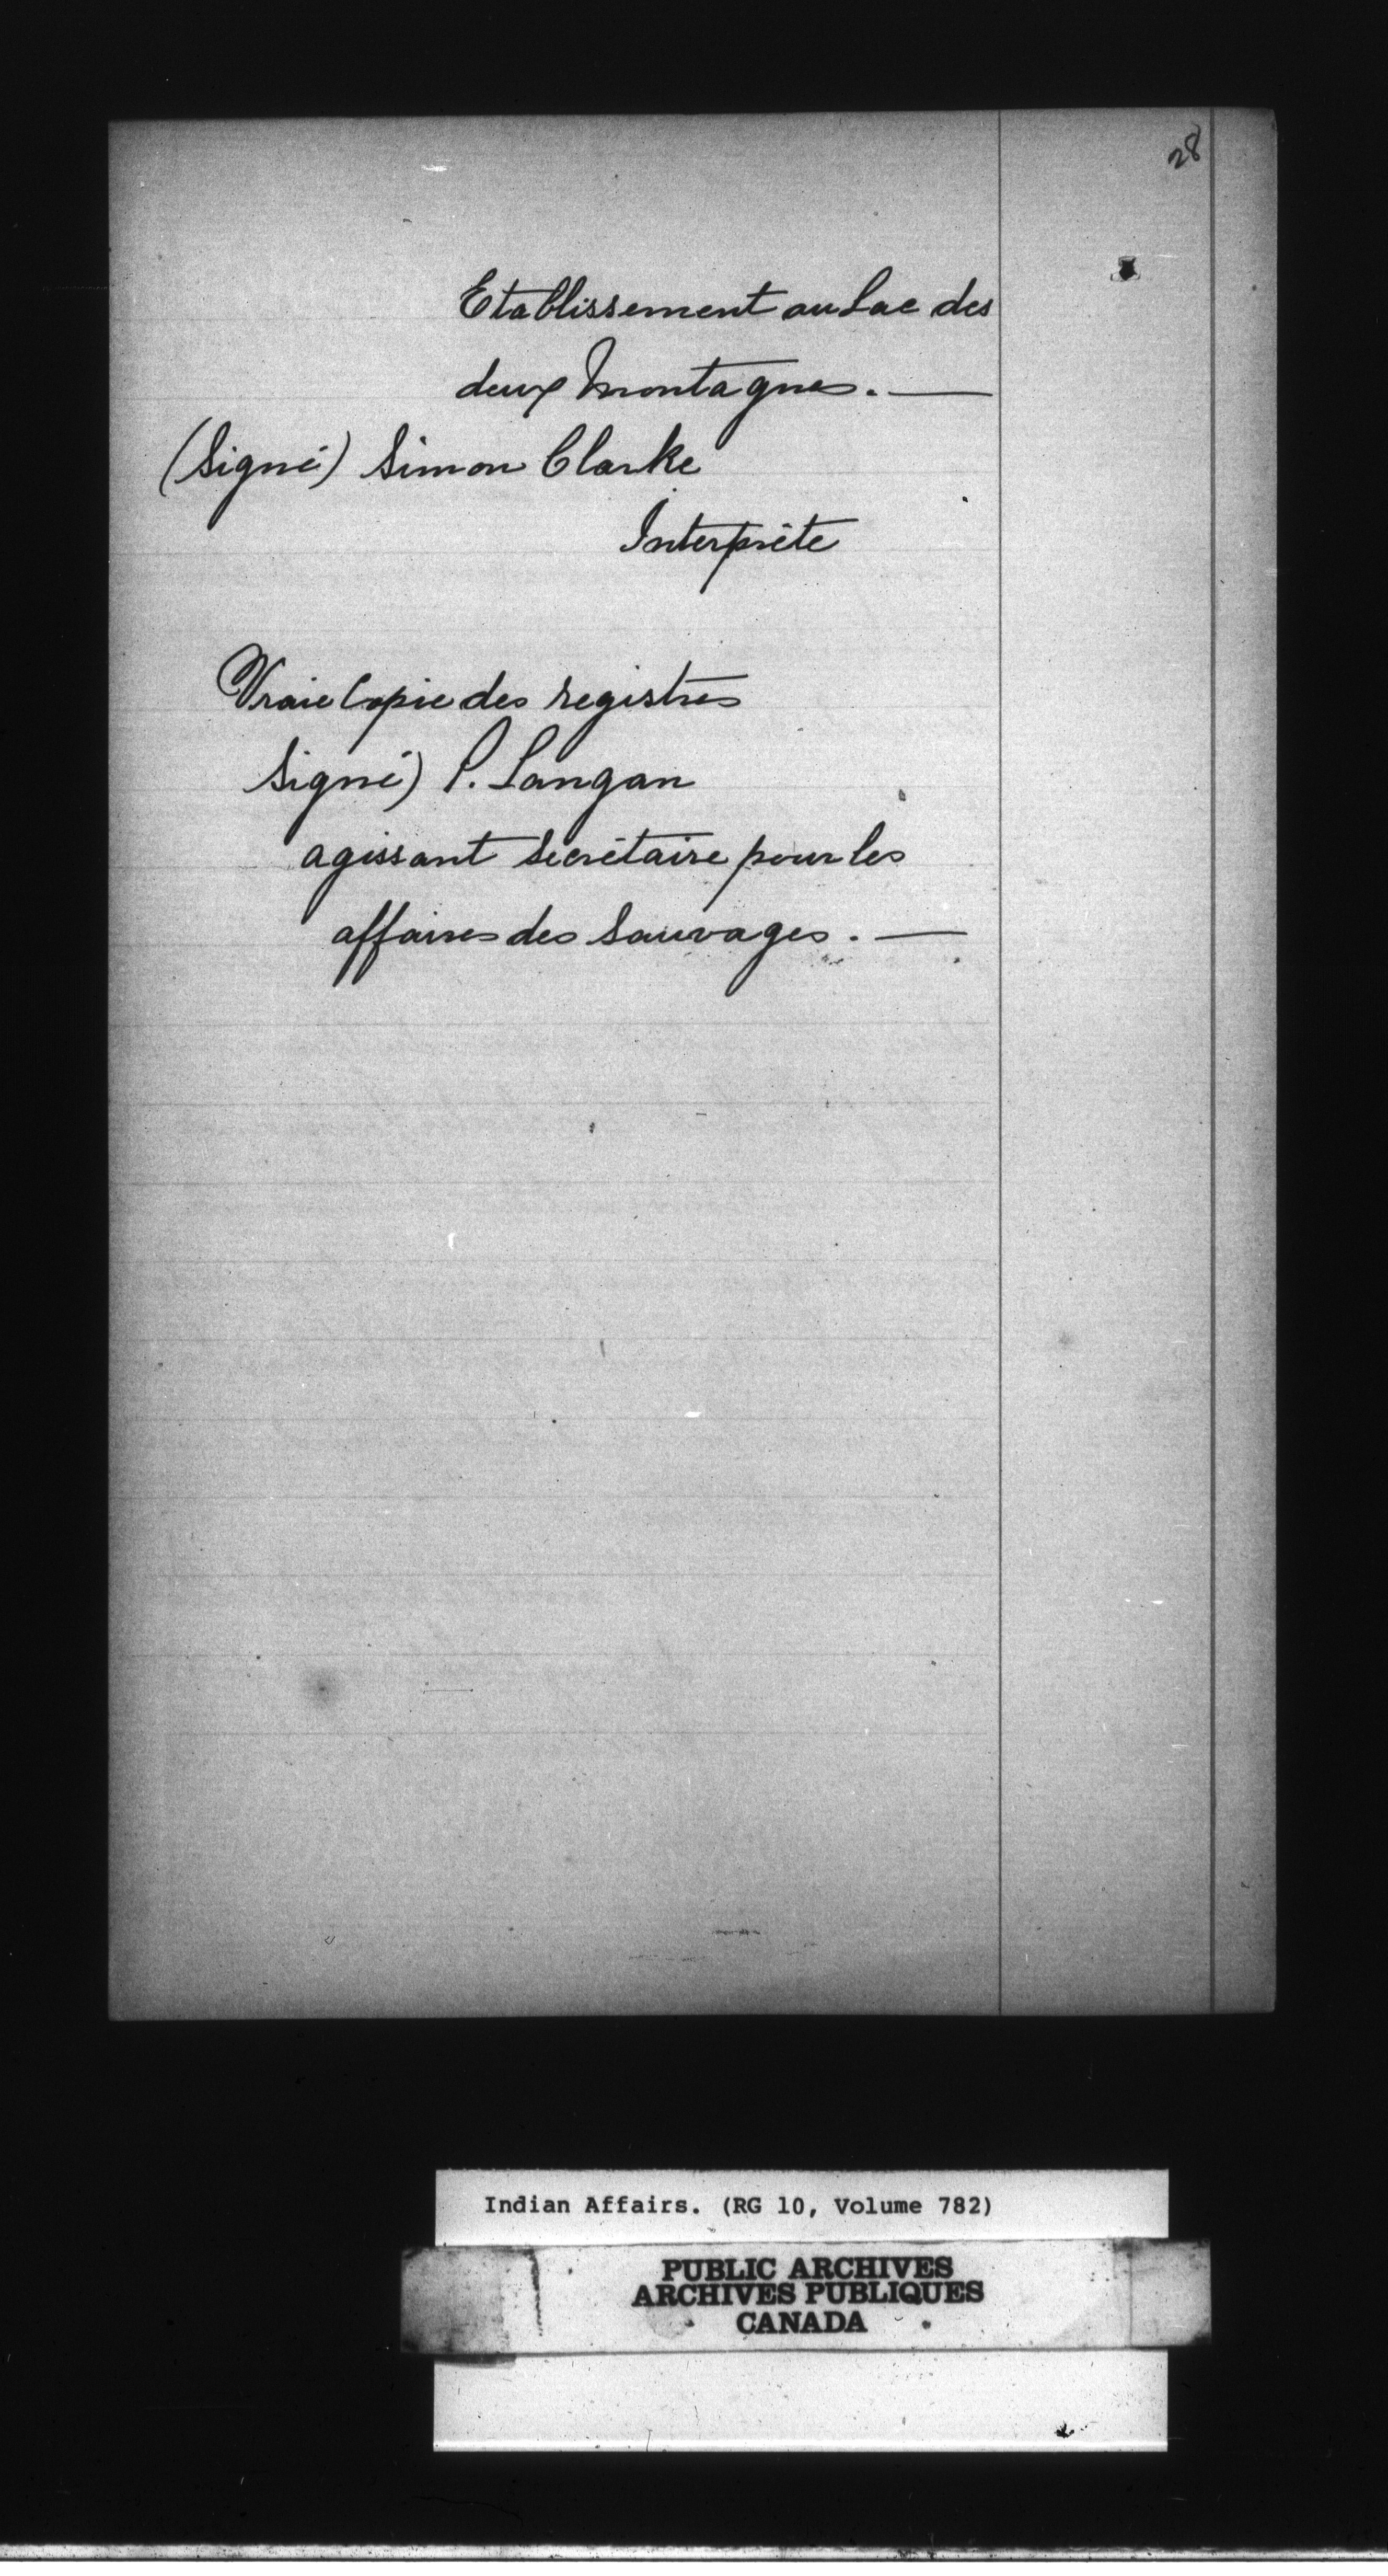 28
Etablissement au Lac des
deux Montagnes. —
(Signé) Simon Clarke
Interprète
Vraie Copie des registres
Signé) P. Langan
agissant secrétaire pour les
affaires des Sauvages. —
Indian Affairs. (RG 10, Volume 782)
PUBLIC ARCHIVES
ARCHIVES PUBLIQUES
CANADA